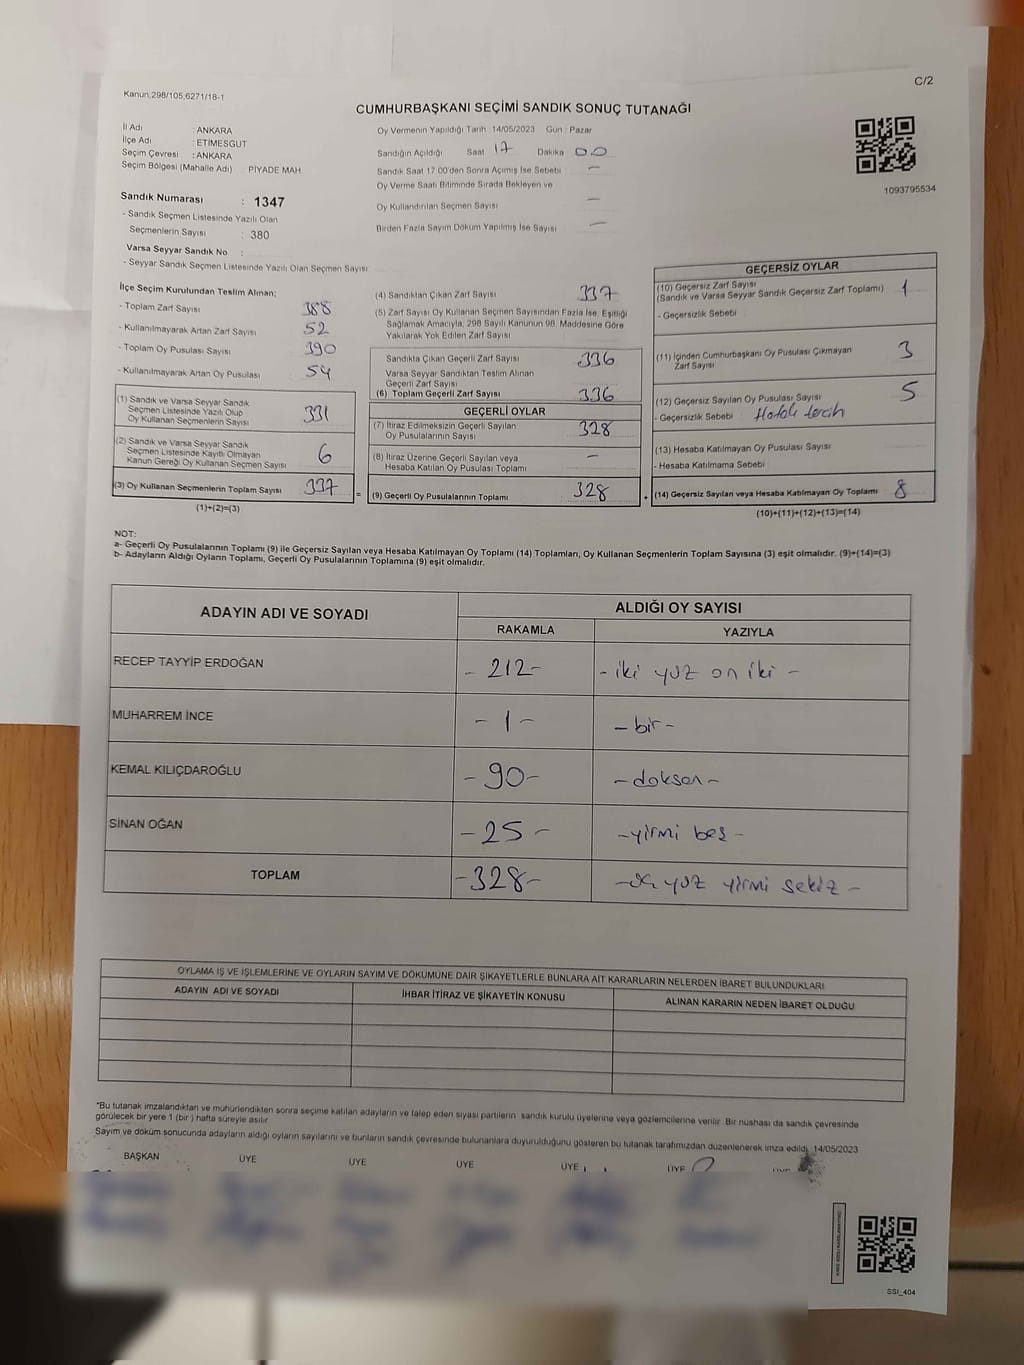 C/2
Kanun;298/105;6271/18-1
CUMHURBAŞKANI SEÇİMİ SANDIK SONUÇ TUTANAĞI
İl Adı : ANKARA
İlçe Adı : ETİMESGUT
Seçim Çevresi : ANKARA
Seçim Bölgesi (Mahalle Adı) : PİYADE MAH.
Sandık Numarası : 1347
- Sandık Seçmen Listesinde Yazılı Olan
Seçmenlerin Sayısı : 380
Varsa Seyyar Sandık No :
- Seyyar Sandık Seçmen Listesinde Yazılı Olan Seçmen Sayısı
Oy Vermenin Yapıldığı Tarih :14/05/2023 Gün : Pazar
Sandığın Açıldığı Saat 17 Dakika 00
Sandık Saat 17.00'den Sonra Açımış İse Sebebi —
Oy Verme Saati Bitiminde Sırada Bekleyen ve
Oy Kullandırılan Seçmen Sayısı —
Birden Fazla Sayım Döküm Yapılmış İse Sayısı —
1093795534
İlçe Seçim Kurulundan Teslim Alınan;
- Toplam Zarf Sayısı 388
- Kullanılmayarak Artan Zarf Sayısı 52
- Toplam Oy Pusulası Sayısı 390
- Kullanılmayarak Artan Oy Pusulası 54
(1) Sandık ve Varsa Seyyar Sandık
Seçmen Listesinde Yazılı Olup
Oy Kullanan Seçmenlerin Sayısı 331
(2) Sandık ve Varsa Seyyar Sandık
Seçmen Listesinde Kayıtlı Olmayan
Kanun Gereği Oy Kullanan Seçmen Sayısı 6
(3) Oy Kullanan Seçmenlerin Toplam Sayısı 337 =
(1)+(2)=(3)
(4) Sandıktan Çıkan Zarf Sayısı 337
(5) Zarf Sayısı Oy Kullanan Seçmen Sayısından Fazla İse, Eşitliği
Sağlamak Amacıyla, 298 Sayılı Kanunun 98. Maddesine Göre
Yakılarak Yok Edilen Zarf Sayısı
Sandıkta Çıkan Geçerli Zarf Sayısı 336
Varsa Seyyar Sandıktan Teslim Alınan
Geçerli Zarf Sayısı
(6) Toplam Geçerli Zarf Sayısı 336
GEÇERLİ OYLAR
(7) İtiraz Edilmeksizin Geçerli Sayılan
Oy Pusulalarının Sayısı 328
(8) İtiraz Üzerine Geçerli Sayılan veya
Hesaba Katılan Oy Pusulası Toplamı —
(9) Geçerli Oy Pusulalarının Toplamı 328 +
GEÇERSİZ OYLAR
(10) Geçersiz Zarf Sayısı
(Sandık ve Varsa Seyyar Sandık Geçersiz Zarf Toplamı) 1
- Geçersizlik Sebebi
(11) İçinden Cumhurbaşkanı Oy Pusulası Çıkmayan
Zarf Sayısı 3
(12) Geçersiz Sayılan Oy Pusulası Sayısı 5
- Geçersizlik Sebebi Hatalı tercih
(13) Hesaba Katılmayan Oy Pusulası Sayısı
- Hesaba Katılmama Sebebi
(14) Geçersiz Sayılan veya Hesaba Katılmayan Oy Toplamı 8
(10)+(11)+(12)+(13)=(14)
NOT:
a- Geçerli Oy Pusulalarının Toplamı (9) ile Geçersiz Sayılan veya Hesaba Katılmayan Oy Toplamı (14) Toplamları, Oy Kullanan Seçmenlerin Toplam Sayısına (3) eşit olmalıdır. (9)+(14)=(3)
b- Adayların Aldığı Oyların Toplamı, Geçerli Oy Pusulalarının Toplamına (9) eşit olmalıdır.
ADAYIN ADI VE SOYADI ALDIĞI OY SAYISI
RAKAMLA YAZIYLA
RECEP TAYYİP ERDOĞAN - 212 - - iki yüz on iki -
MUHARREM İNCE - 1 - - bir -
KEMAL KILIÇDAROĞLU - 90 - - doksan -
SİNAN OĞAN - 25 - - yirmi beş -
TOPLAM - 328 - - üç yüz yirmi sekiz -
OYLAMA İŞ VE İŞLEMLERİNE VE OYLARIN SAYIM VE DÖKÜMÜNE DAİR ŞİKAYETLERLE BUNLARA AİT KARARLARIN NELERDEN İBARET BULUNDUKLARI
ADAYIN ADI VE SOYADI İHBAR İTİRAZ VE ŞİKAYETİN KONUSU ALINAN KARARIN NEDEN İBARET OLDUĞU
*Bu tutanak imzalandıktan ve mühürlendikten sonra seçime katılan adayların ve talep eden siyasi partilerin sandık kurulu üyelerine veya gözlemcilerine verilir. Bir nüshası da sandık çevresinde
görülecek bir yere 1 (bir ) hafta süreyle asılır
Sayım ve döküm sonucunda adayların aldığı oyların sayılarını ve bunların sandık çevresinde bulunanlara duyurulduğunu gösteren bu tutanak tarafımızdan düzenlenerek imza edildi. 14/05/2023
BAŞKAN ÜYE ÜYE ÜYE ÜYE ÜYE ÜYE
SSI_404